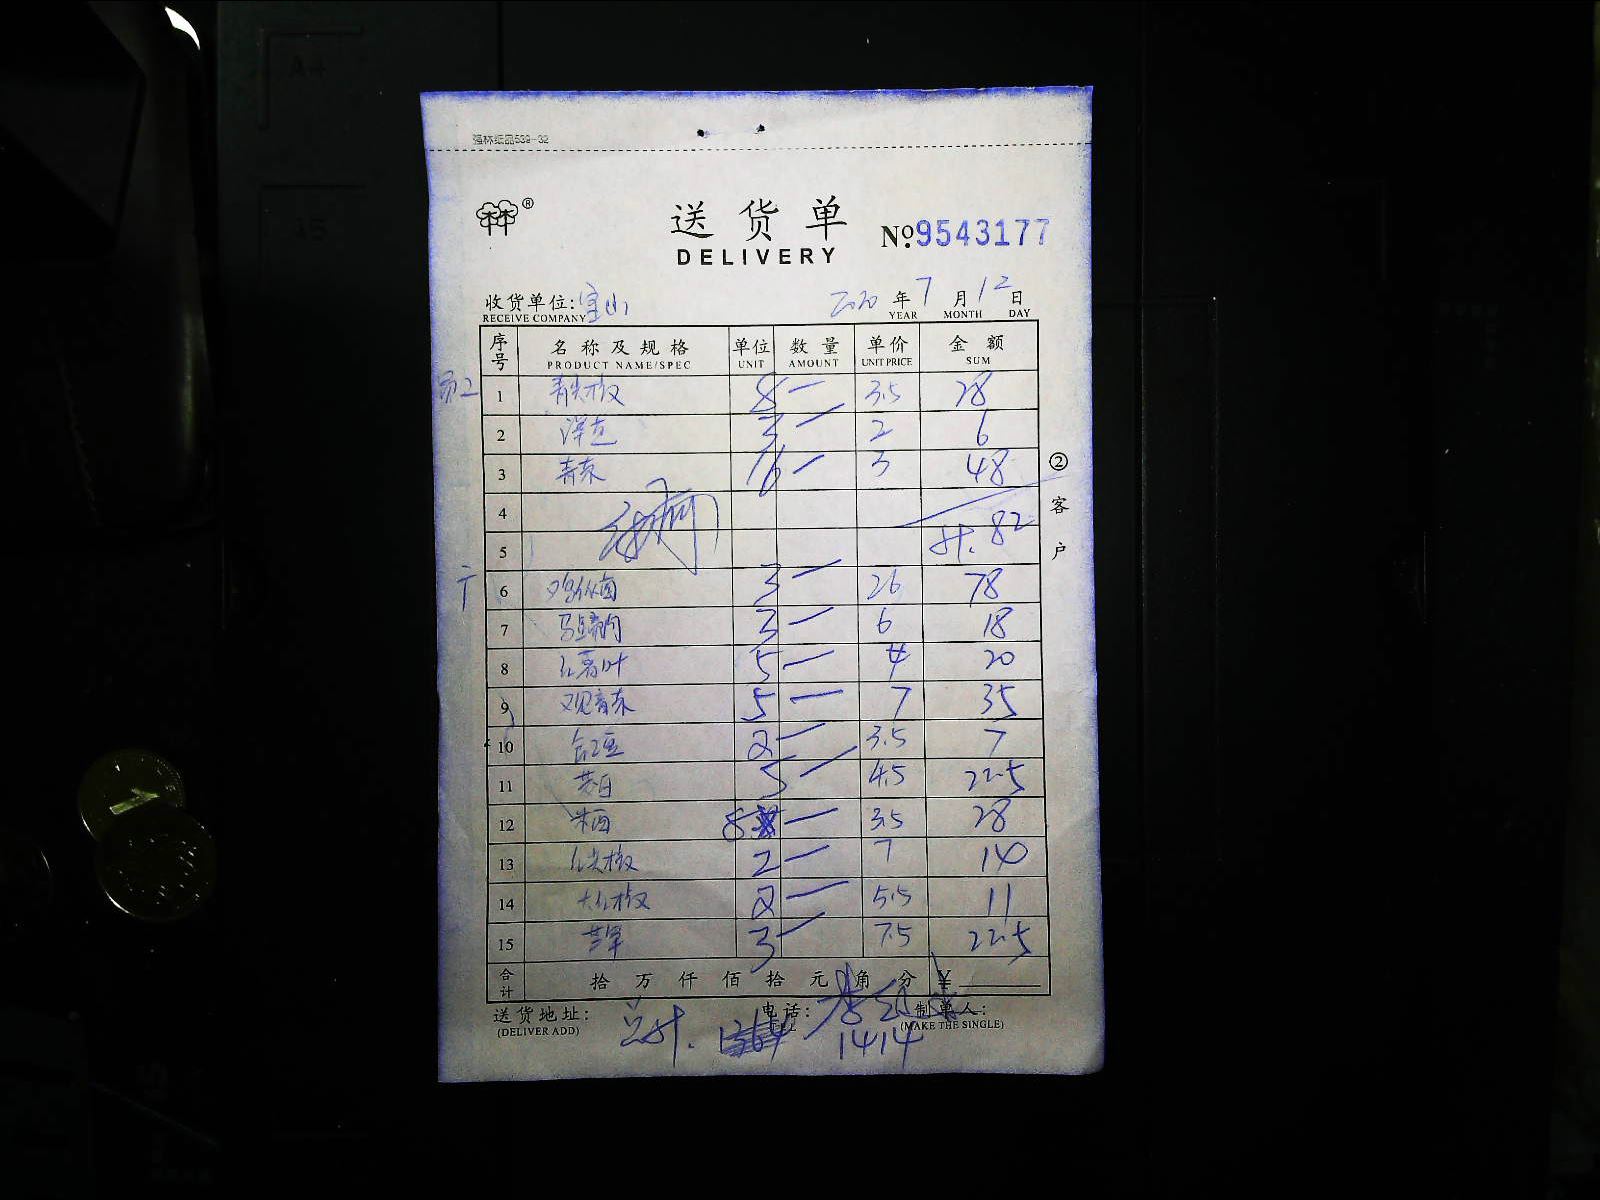 强林纸品539-32
®
送货单
DELIVERY
No.9543177
收货单位:宝山 2020年7月12日
RECEIVE COMPANY YEAR MONTH DAY
序号 名称及规格 单位 数量 单价 金额
PRODUCT NAME/SPEC UNIT AMOUNT UNIT PRICE SUM
员工 1 青尖椒 8 — 3.5 28
2 洋葱 3 — 2 6
3 青菜 16 — 3 48
4
5 计.82
6 鸡枞菌 3 — 26 78
7 马蹄肉 3 — 6 18
8 红薯叶 5 — 4 20
9 5 — 7 35
10 豆 2 — 3.5 7
11 5 — 4.5 22.5
12 8 — 3.5 28
13 红尖椒 2 — 7 14
14 大红椒 2 — 5.5 11
15 3 — 7.5 22.5
合计 拾 万 仟 佰 拾 元 角 分 ¥
送货地址: 电话: 制单人:
(DELIVER ADD) TEL (MAKE THE SINGLE)
总计. 1414
②客户